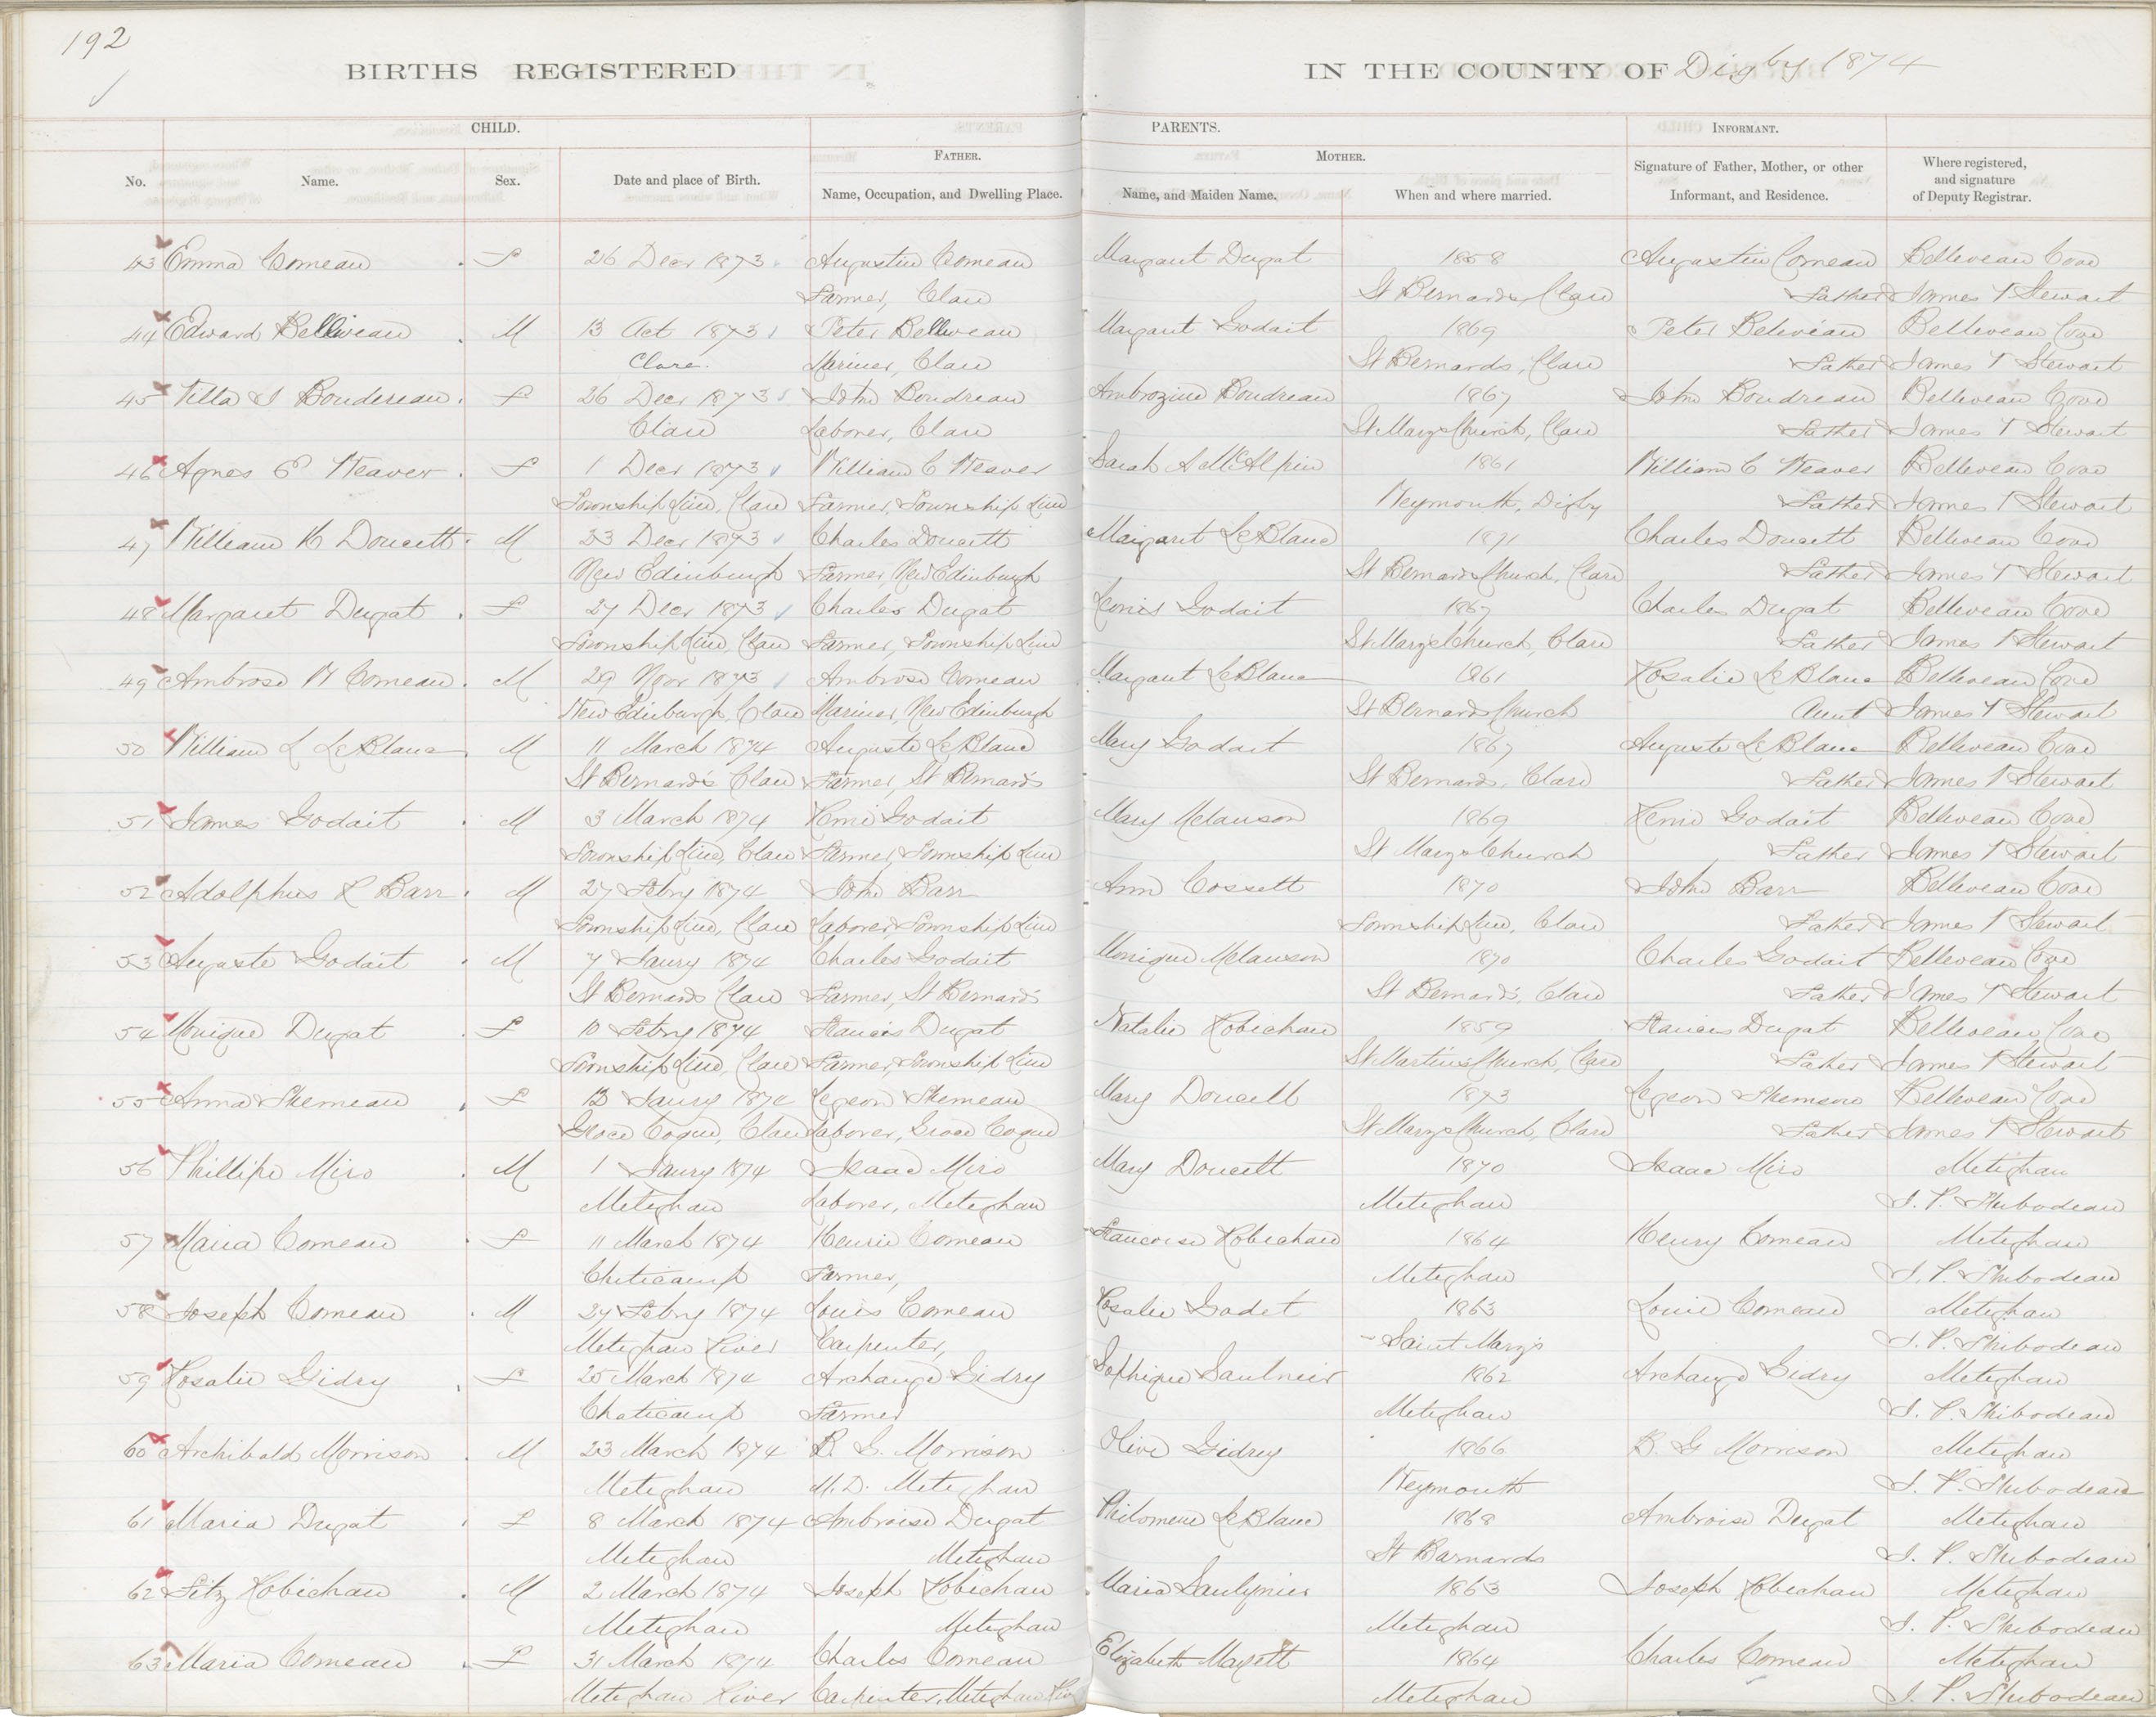 192
BIRTHS REGISTERED IN THE COUNTY OF Digby 1874
CHILD. PARENTS. INFORMANT.
FATHER. MOTHER.
No. Name. Sex. Date and place of Birth. Name, Occupation, and Dwelling Place. Name, and Maiden Name. When and where married. Signature of Father, Mother, or other Informant, and Residence. Where registered, and signature of Deputy Registrar.
43 Emma Comeau F 26 Decr 1873 Augustin Comeau Margaret Dugat 1858 Augustin Comeau Belliveau Cove
Farmer, Clare St Bernards, Clare Father James T Stewart
44 Edward Belliveau M 13 Oct 1873 Peter Belliveau Margaret Godait 1869 Peter Beliveau Belliveau Cove
Clare. Mariner, Clare St Bernards, Clare Father James T Stewart
45 Villa J Boudereau F 26 Decr 1873 John Boudreau Ambrozine Boudreau 1867 John Boudreau Belliveau Cove
Clare Laborer, Clare St Marys Church, Clare Father James T Stewart
46 Agnes E Weaver F 1 Decr 1873 William C Weaver Sarah A McAlpin 1861 William C Weaver Belliveau Cove
Township Line, Clare Farmer, Township Line Weymouth, Digby Father James T Stewart
47 William H Doucett M 23 Decr 1873 Charles Doucett Margaret LeBlanc 1871 Charles Doucett Belliveau Cove
New Edinburgh Farmer, New Edinburgh St Bernards Church, Clare Father James T Stewart
48 Margaret Dugat F 27 Decr 1873 Charles Dugat Leonis Godait 1867 Charles Dugat Belliveau Cove
Township Line, Clare Farmer, Township Line St Marys Church, Clare Father James T Stewart
49 Ambrose W Comeau M 29 Novr 1873 Ambrose Comeau Margaret LeBlanc 1861 Rosalie LeBlanc Belliveau Cove
New Edinburgh, Clare Mariner, New Edinburgh St Bernards Church Aunt James T Stewart
50 William L LeBlanc M 11 March 1874 Auguste LeBlanc Mary Godait 1867 Auguste LeBlanc Belliveau Cove
St Bernard's Clare Farmer, St Bernards St Bernards, Clare Father James T Stewart
51 James Godait M 3 March 1874 Remi Godait Mary Melanson 1869 Remi Godait Belliveau Cove
Township Line, Clare Farmer, Township Line St Marys Church Father James T Stewart
52 Adolphus R Barr M 27 Febry 1874 John Barr Ann Cossett 1870 John Barr Belliveau Cove
Township Line, Clare Laborer Township Line Township Line, Clare Father James T Stewart
53 Auguste Godait M 7 Janry 1874 Charles Godait Monique Melanson 1870 Charles Godait Belliveau Cove
St Bernards Clare Farmer, St Bernards St Bernard's, Clare Father James T Stewart
54 Monique Dugat F 10 Febry 1874 Francis Dugat Natalie Robichau 1859 Francis Dugat Belliveau Cove
Township Line, Clare Farmer, Township Line St Martins Church, Clare Father James T Stewart
55 Anna Themeau F 13 Janry 1874 Legeon Themeau Mary Doucett 1873 Legeon Belliveau Cove
Groce Coque, Clare Laborer, Groce Coque St Marys Church, Clare Father James T Stewart
56 Phillipe Miro M 1 Janry 1874 Isaac Miro Mary Doucett 1870 Isaac Miro Meteghan
Meteghan Laborer, Meteghan Meteghan J. P. Thibodeau
57 Maria Comeau F 11 March 1874 Henrie Comeau Francoise Robichau 1864 Henry Comeau Meteghan
Cheticamp Farmer, Meteghan J. P. Thibodeau
58 Joseph Comeau M 24 Febry 1874 Louis Comeau Rosalie Godet 1863 Louis Comeau Meteghan
Meteghan River Carpenter, Saint Mary's J. P. Thibodeau
59 Rosalie Gidry F 25 March 1874 Archange Gidry Sophique Saulnier 1862 Archange Gidry Meteghan
Cheticamp Farmer Meteghan J. P. Thibodeau
60 Archibald Morrison M 23 March 1874 R. G. Morrison Olive Gidry 1866 R. G Morrison Meteghan
Meteghan M.D. Meteghan Weymouth J. P. Thibodeau
61 Maria Dugat F 8 March 1874 Ambroise Dugat Philomene LeBlanc 1868 Ambroise Dugat Meteghan
Meteghan Meteghan St Barnards J. P. Thibodeau
62 Fitz Robichau M 2 March 1874 Joseph Robichau Maria Saulynier 1863 Joseph Robichau Meteghan
Meteghan Meteghan Meteghan J. P. Thibodeau
63 Maria Comeau F 31 March 1874 Charles Comeau Elizabeth Mayett 1864 Charles Comeau Meteghan
Meteghan River Carpenter, Meteghan Riv Meteghan J. P. Thibodeau